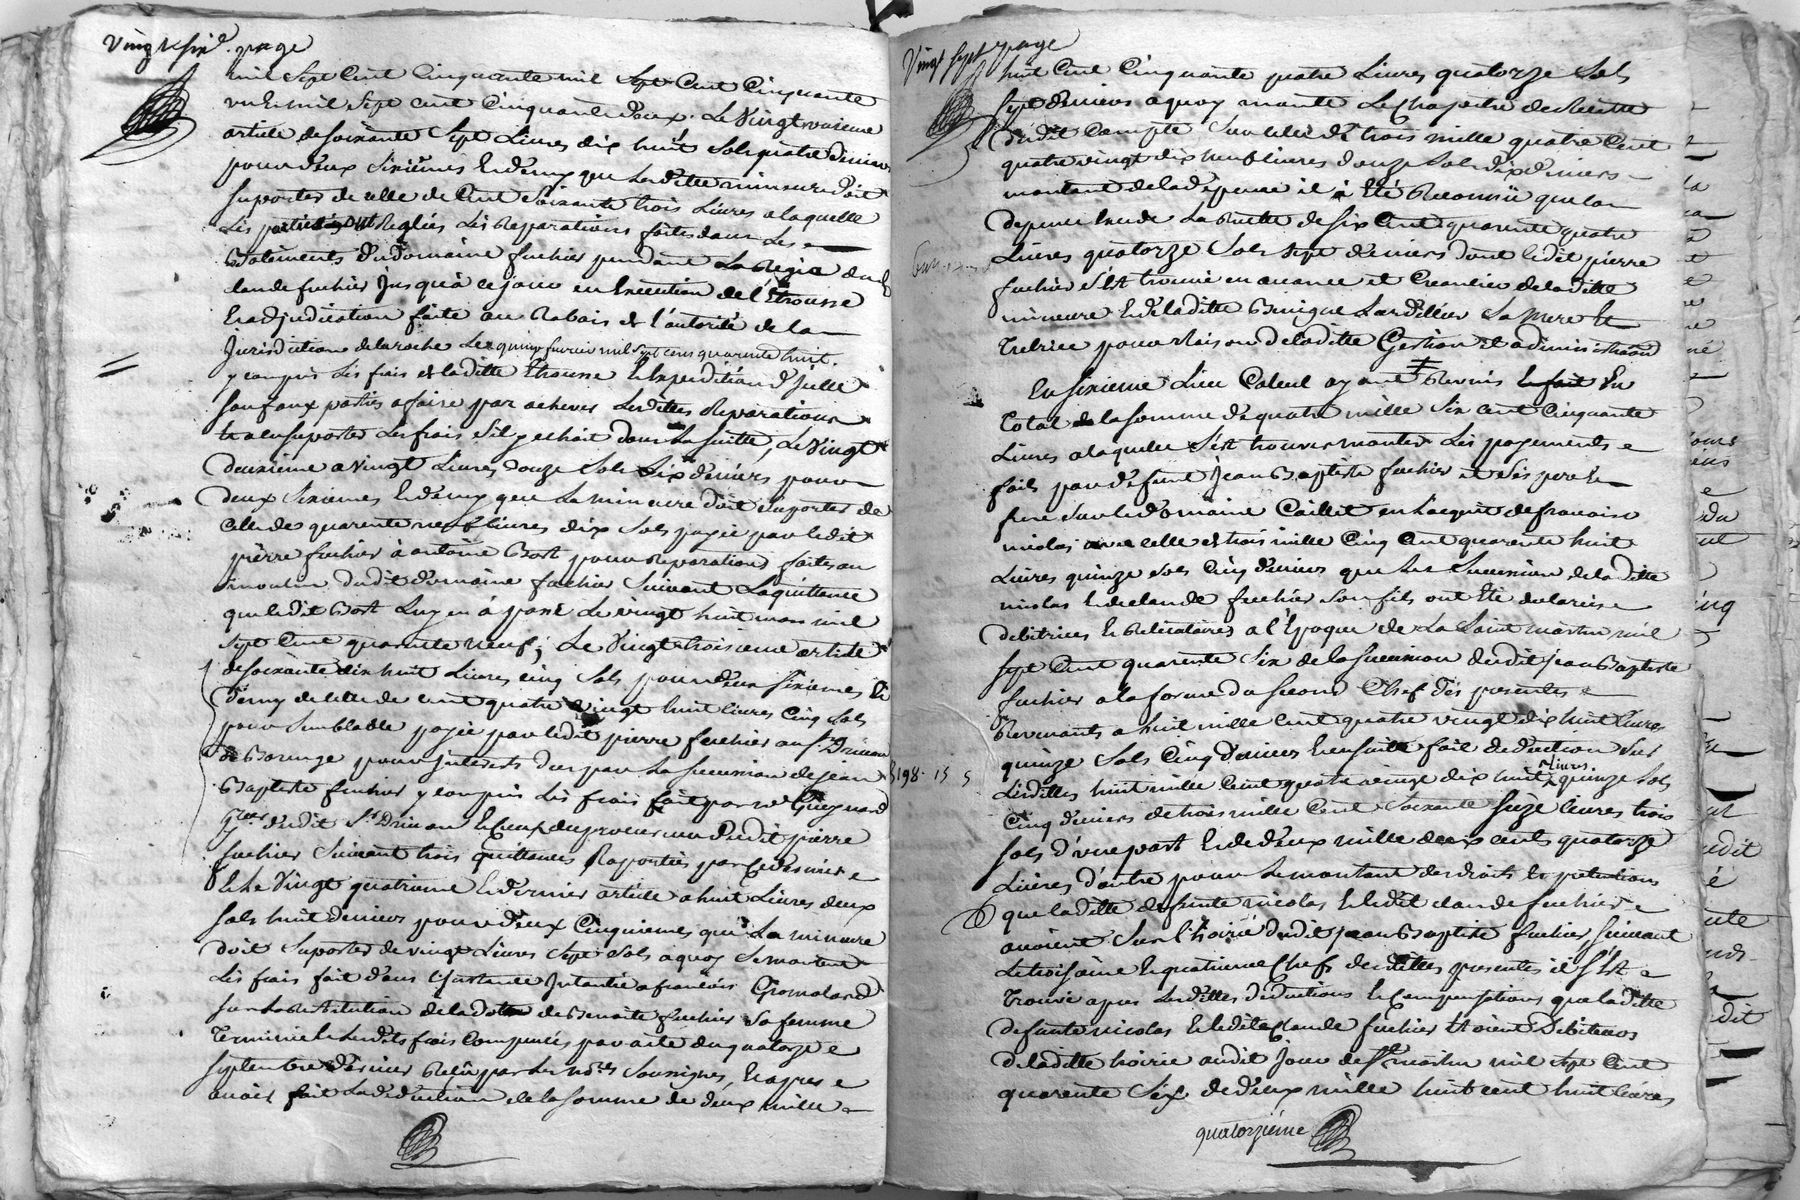 Vingt sixe. page
mil Sept Cent Cinquante mil Sept Cent Cinquante
un et mil Sept cent Cinquante deux. Le Vingt unieme
article de soixante Sept Livres dix huit Sols quatre deniers
pour deux Sixiemes Et demy que Laditte mineure doit
suporter de celle de Cent Soixante trois Livres a laquelle
Les parties ont Reglées Les Reparations faites dans Les
Batiments du domaine fuchier pendant La Regie dud
Claude fuchier Jusqu'à ce jour en Execution de l'Etrousse
Et adjudication faite au Rabais de l'autorité de la
Jurisdiction de laroche Le quinze fevrier mil Sept cens quarante huit.
y compris Les frais de laditte Etrousse Et Expedition d'Icelle
Sauf aux parties a faire par achever Lesdittes Reparations
Et a en suporter Les frais S'il y echoit dans La suitte, Le Vingt
deuxieme a Vingt Livres douze Sols Six deniers pour
deux Sixiemes Et demy que La mineure doit suporter de
Celle de quarante neuf Livres dix Sols payée par ledit
pierre fuchier à antoine Bost pour Reparations faites au
moulin dudit domaine fuchier Suivant La quittance
que ledit Bost Luy en á passé Le vingt huit mars mil
Sept Cent quarante neuf; Le Vingt troisieme article
de soixante dix huit Livres cinq Sols pour deux Sixiemes Et
demy de celle de cent quatre vingt huit Livres Cinq Sols
pour Semblable payée par ledit pierre fuchier au Sr.
pour Interests dus par La Succession de Jean
Baptiste fuchier y compris Les frais fait par
dudit Sr. Et Ceux du procureur dudit pierre
fuchier Suivant trois quittances Raportées par
Et Le Vingt quatrieme Et dernier article a huit Livres deux
Sols huit deniers pour deux Cinquiemes que La mineure
doit Suporter de vingt Livres Sept Sols a quoy Se montent
Les frais fait dans l'Instance Intentée a francois
Sur La Restitution de la dotte de Benoite fuchier Sa femme
Terminée Et Lesdits frais Compensés par acte du quatorze
Septembre dernier Reçu par Les nores. Soussignes, Et apres
avoir fait La deduction de la somme de deux mille
Vingt Sept page
huit Cent Cinquante quatre Livres quatorze Sols
Sept deniers a quoy monte Le Chapitre de Recette
dudit Compte Sur celle de trois mille quatre Cent
quatre vingt dix neuf livres douze Sols dix deniers
montant de la depense il a Eté Reconnu que la
depense Excede La Recette de six Cent quarante quatre
Livres quatorze Sols Sept deniers dont ledit pierre
fuchier s'est trouvé en avance et Creancier de laditte
mineure Et de laditte Benigne Lardillier Sa mere Et
Tutrice pour Raison de laditte Gestion et administration
En Sixieme Lieu Calcul ayant Revenis Et fait En
Total de la somme de quatre mille Six cent Cinquante
Livres a laquelle S'est trouvés monter Les payements
faits par defunt Jean Baptiste fuchier et Ses pere Et
frere Sur le domaine Caillet En l'acquit de francoise
nicolas avec celle de trois mille Cinq Cent quarante huit
Livres quinze Sols Cinq deniers que Les Succession de laditte
nicolas Et de claude fuchier Son fils ont Eté declarées
debitrices Et Reliquataires a l'Epoque de La Saint martin mil
Sept Cent quarante Six de la Succession dudit jean Baptiste
fuchier a la forme du Second Chef des presentes
Revenants a huit mille cent quatre vingt dix huit Livres
quinze Sols Cinq deniers Et ensuitte fait deduction Sur
8198. 15 5
Lesdittes huit mille Cent quatre vingt dix huit Livres quinze Sols
Cinq deniers de trois mille Cent Soixante Seize livres trois
Sols d'une part Et de deux mille deux cents quatorze
Livres d'autre pour Le montant des droits Et pretentions
que laditte defunte nicolas Et ledit claude fuchier
avoient Sur l'hoirie dudit jean Baptiste fuchier Suivant
Le troisième Et quatrieme Chefs desdittes presentes il s'Est
Trouvé apres Lesdittes deductions Et Compensations que laditte
defunte nicolas Et ledit Claude fuchier Etoient debiteurs
de laditte hoirie audit Jour de St. martin mil Sept Cent
quarante Six de deux mille huit cent huit livres
quatorzième